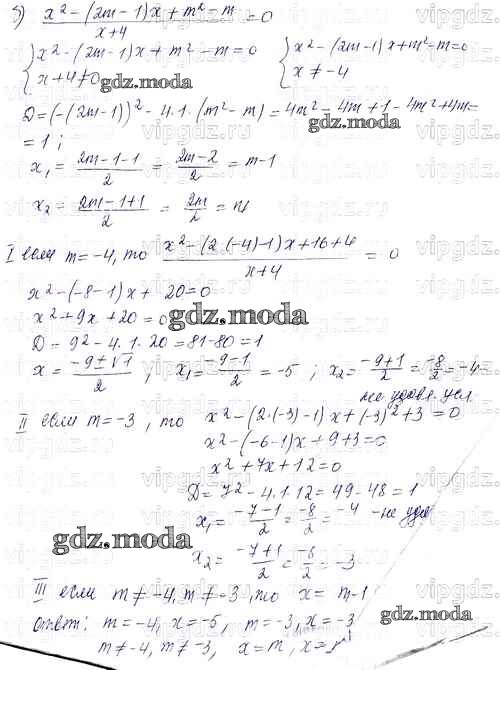 5) (x² - (2m-1)x + m² - m)/(x+4) = 0
{x² - (2m-1)x + m² - m = 0 {x² - (2m-1)x + m² - m = 0
{x+4≠0 {x ≠ -4
gdz.moda
D = (-(2m-1))² - 4·1·(m² - m) = 4m² - 4m + 1 - 4m² + 4m =
gdz.moda
= 1;
x₁ = (2m-1-1)/2 = (2m-2)/2 = m-1
x₂ = (2m-1+1)/2 = 2m/2 = m
I если m = -4, то (x² - (2·(-4)-1)x + 16 + 4)/(x+4) = 0
x² - (-8-1)x + 20 = 0
x² + 9x + 20 = 0
gdz.moda
D = 9² - 4·1·20 = 81 - 80 = 1
x = (-9±√1)/2; x₁ = (-9-1)/2 = -5; x₂ = (-9+1)/2 = -8/2 = -4 -
не удовл. усл
II если m = -3, то x² - (2·(-3)-1)x + (-3)² + 3 = 0
x² - (-6-1)x + 9 + 3 = 0
x² + 7x + 12 = 0
D = 7² - 4·1·12 = 49 - 48 = 1
x₁ = (-7-1)/2 = -8/2 = -4 - не удов
gdz.moda
x₂ = (-7+1)/2 = -6/2 = -3
III если m ≠ -4, m ≠ -3, то x = m-1
Ответ: m = -4, x = -5, m = -3, x = -3
gdz.moda
m ≠ -4, m ≠ -3, x = m,
vipgdz.ru